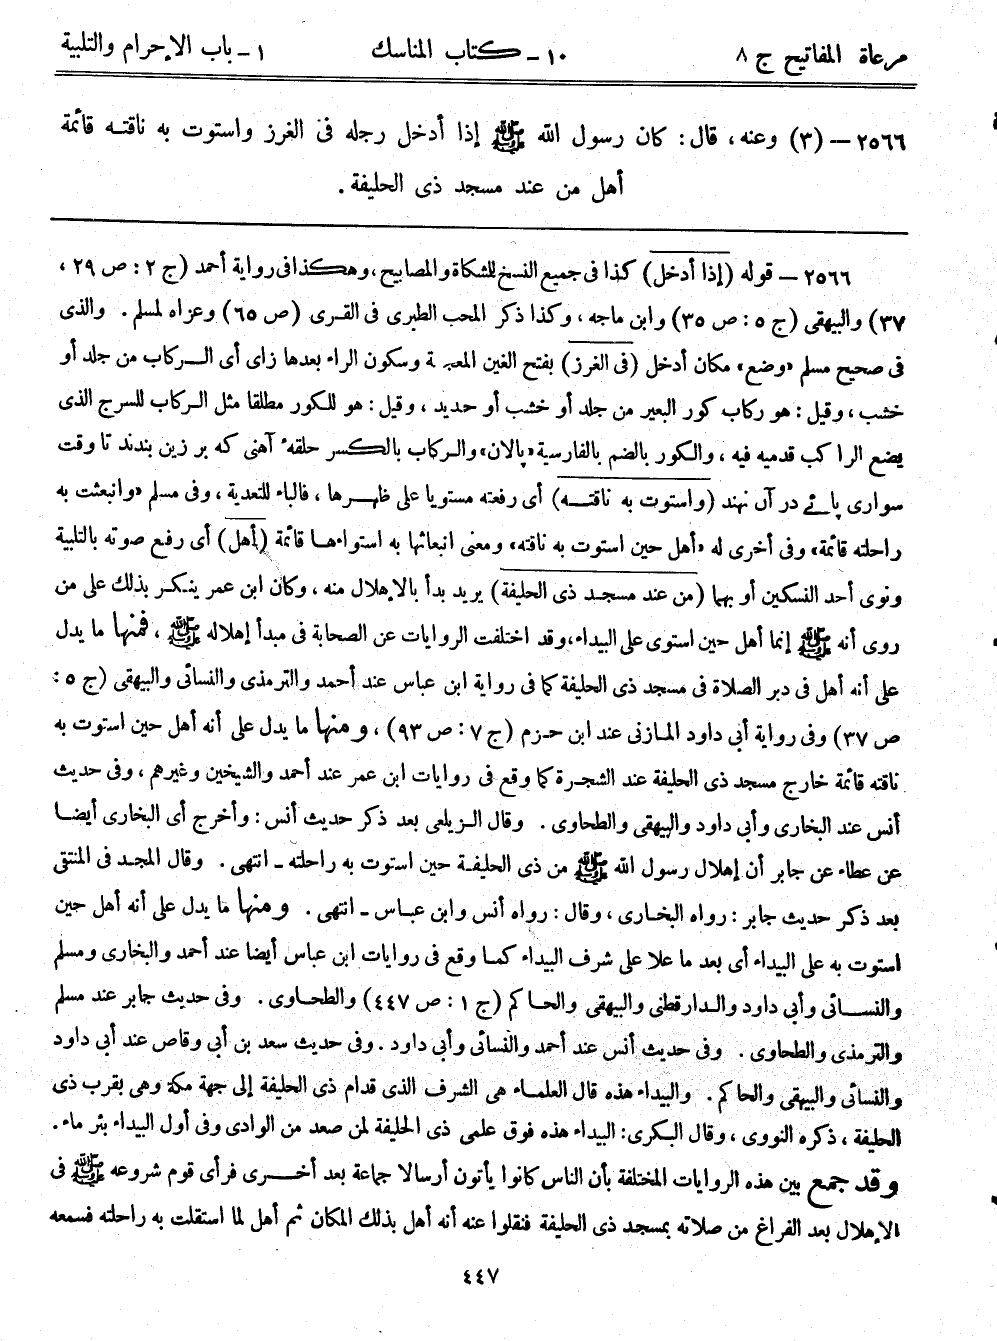 مرعاة المفاتيح ج ٨ ١٠ - كتاب المناسك ١ - باب الإحرام والتلبية
٢٥٦٦ – (٣) وعنه، قال: كان رسول الله ﷺ إذا أدخل رجله فى الغرز واستوت به ناقته قائمة
أهل من عند مسجد ذى الحليفة.
٢٥٦٦ – قوله (إذا أدخل) كذا فى جميع النسخ للشكاة والمصابيح، وهكذا فى رواية أحمد (ج ٢: ص ٢٩،
٣٧) والبيهقى (ج ٥: ص ٣٥) وابن ماجه، وكذا ذكر المحب الطبرى فى القرى (ص ٦٥) وعزاه لمسلم. والذى
فى صحيح مسلم «وضع» مكان أدخل (فى الغرز) بفتح الغين المعجمة وسكون الراء بعدها زاى أى الركاب من جلد أو
خشب، وقيل: هو ركاب كور البعير من جلد أو خشب أو حديد، وقيل: هو للكور مطلقا مثل الركاب للسرج الذى
يضع الراكب قدميه فيه، والكور بالضم بالفارسية «پالان» والركاب بالكسر حلقۀ آهنى كه بر زين بندند تا وقت
سوارى پائے در آں نهند (واستوت به ناقته) أى رفعته مستويا على ظهرها، فالباء للتعدية، وفى مسلم «وانبعثت به
راحلته قائمة» وفى أخرى له «أهل حين استوت به ناقته» ومعنى انبعاثها به استواءها قائمة (أهل) أى رفع صوته بالتلبية
ونوى أحد النسكين أو بهما (من عند مسجد ذى الحليفة) يريد بدأ بالإهلال منه، وكان ابن عمر ينكر بذلك على من
روى أنه ﷺ إنما أهل حين استوى على البيداء، وقد اختلفت الروايات عن الصحابة فى مبدأ إهلاله ﷺ، فمنها ما يدل
على أنه أهل فى دبر الصلاة فى مسجد ذى الحليفة كما فى رواية ابن عباس عند أحمد والترمذى والنسائى والبيهقى (ج ٥:
ص ٣٧) وفى رواية أبى داود المازنى عند ابن حزم (ج ٧: ص ٩٣)، ومنها ما يدل على أنه أهل حين استوت به
ناقته قائمة خارج مسجد ذى الحليفة عند الشجرة كما وقع فى روايات ابن عمر عند أحمد والشيخين وغيرهم، وفى حديث
أنس عند البخارى وأبى داود والبيهقى والطحاوى. وقال الزيلعى بعد ذكر حديث أنس: وأخرج أى البخارى أيضا
عن عطاء عن جابر أن إهلال رسول الله ﷺ من ذى الحليفة حين استوت به راحلته – انتهى. وقال المجد فى المنتقى
بعد ذكر حديث جابر: رواه البخارى، وقال: رواه أنس وابن عباس – انتهى. ومنها ما يدل على أنه أهل حين
استوت به على البيداء أى بعد ما علا على شرف البيداء كما وقع فى روايات ابن عباس أيضا عند أحمد والبخارى ومسلم
والنسائى وأبى داود والدارقطنى والبيهقى والحاكم (ج ١: ص ٤٤٧) والطحاوى. وفى حديث جابر عند مسلم
والترمذى والطحاوى. وفى حديث أنس عند أحمد والنسائى وأبى داود. وفى حديث سعد بن أبى وقاص عند أبى داود
والنسائى والبيهقى والحاكم. والبيداء هذه قال العلماء هى الشرف الذى قدام ذى الحليفة إلى جهة مكة وهى بقرب ذى
الحليفة، ذكره النووى، وقال البكرى: البيداء هذه فوق علمى ذى الحليفة لمن صعد من الوادى وفى أول البيداء بئر ماء.
وقد جمع بين هذه الروايات المختلفة بأن الناس كانوا يأتون أرسالا جماعة بعد أخرى فرأى قوم شروعه ﷺ فى
الإهلال بعد الفراغ من صلاته بمسجد ذى الحليفة فنقلوا عنه أنه أهل بذلك المكان ثم أهل لما استقلت به راحلته فسمعه
٤٤٧